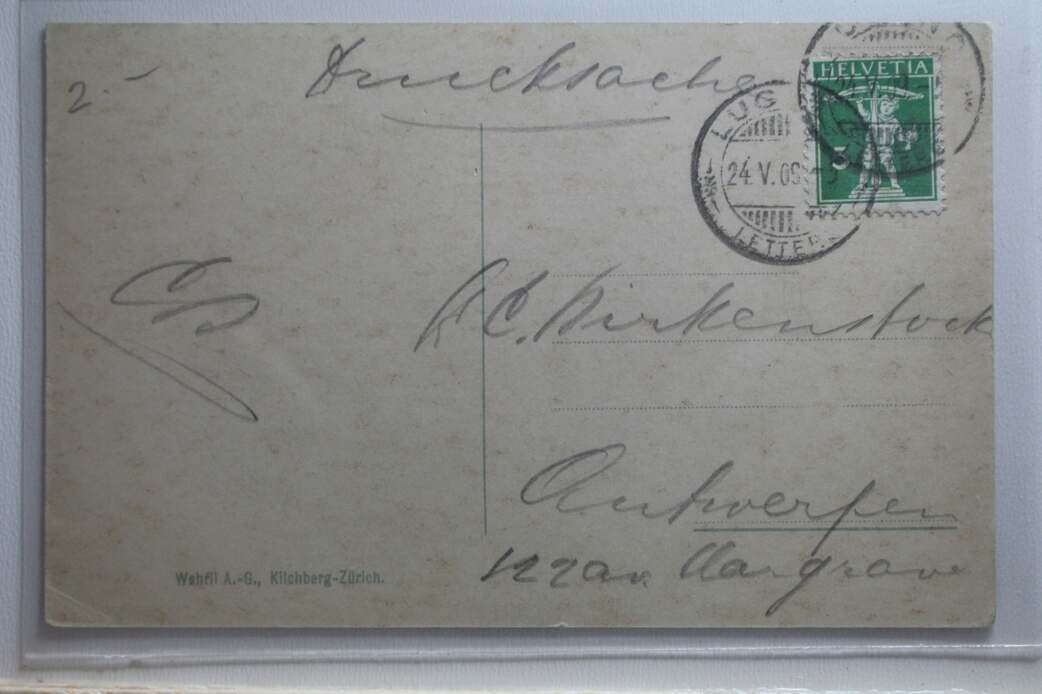 2.-
Drucksache
HELVETIA
5
LUG
24.V.09.-5
LETTER
A.C. Birkenstock
Antwerpen
122 av Margrave
Wehrli A.-G., Kilchberg-Zürich.